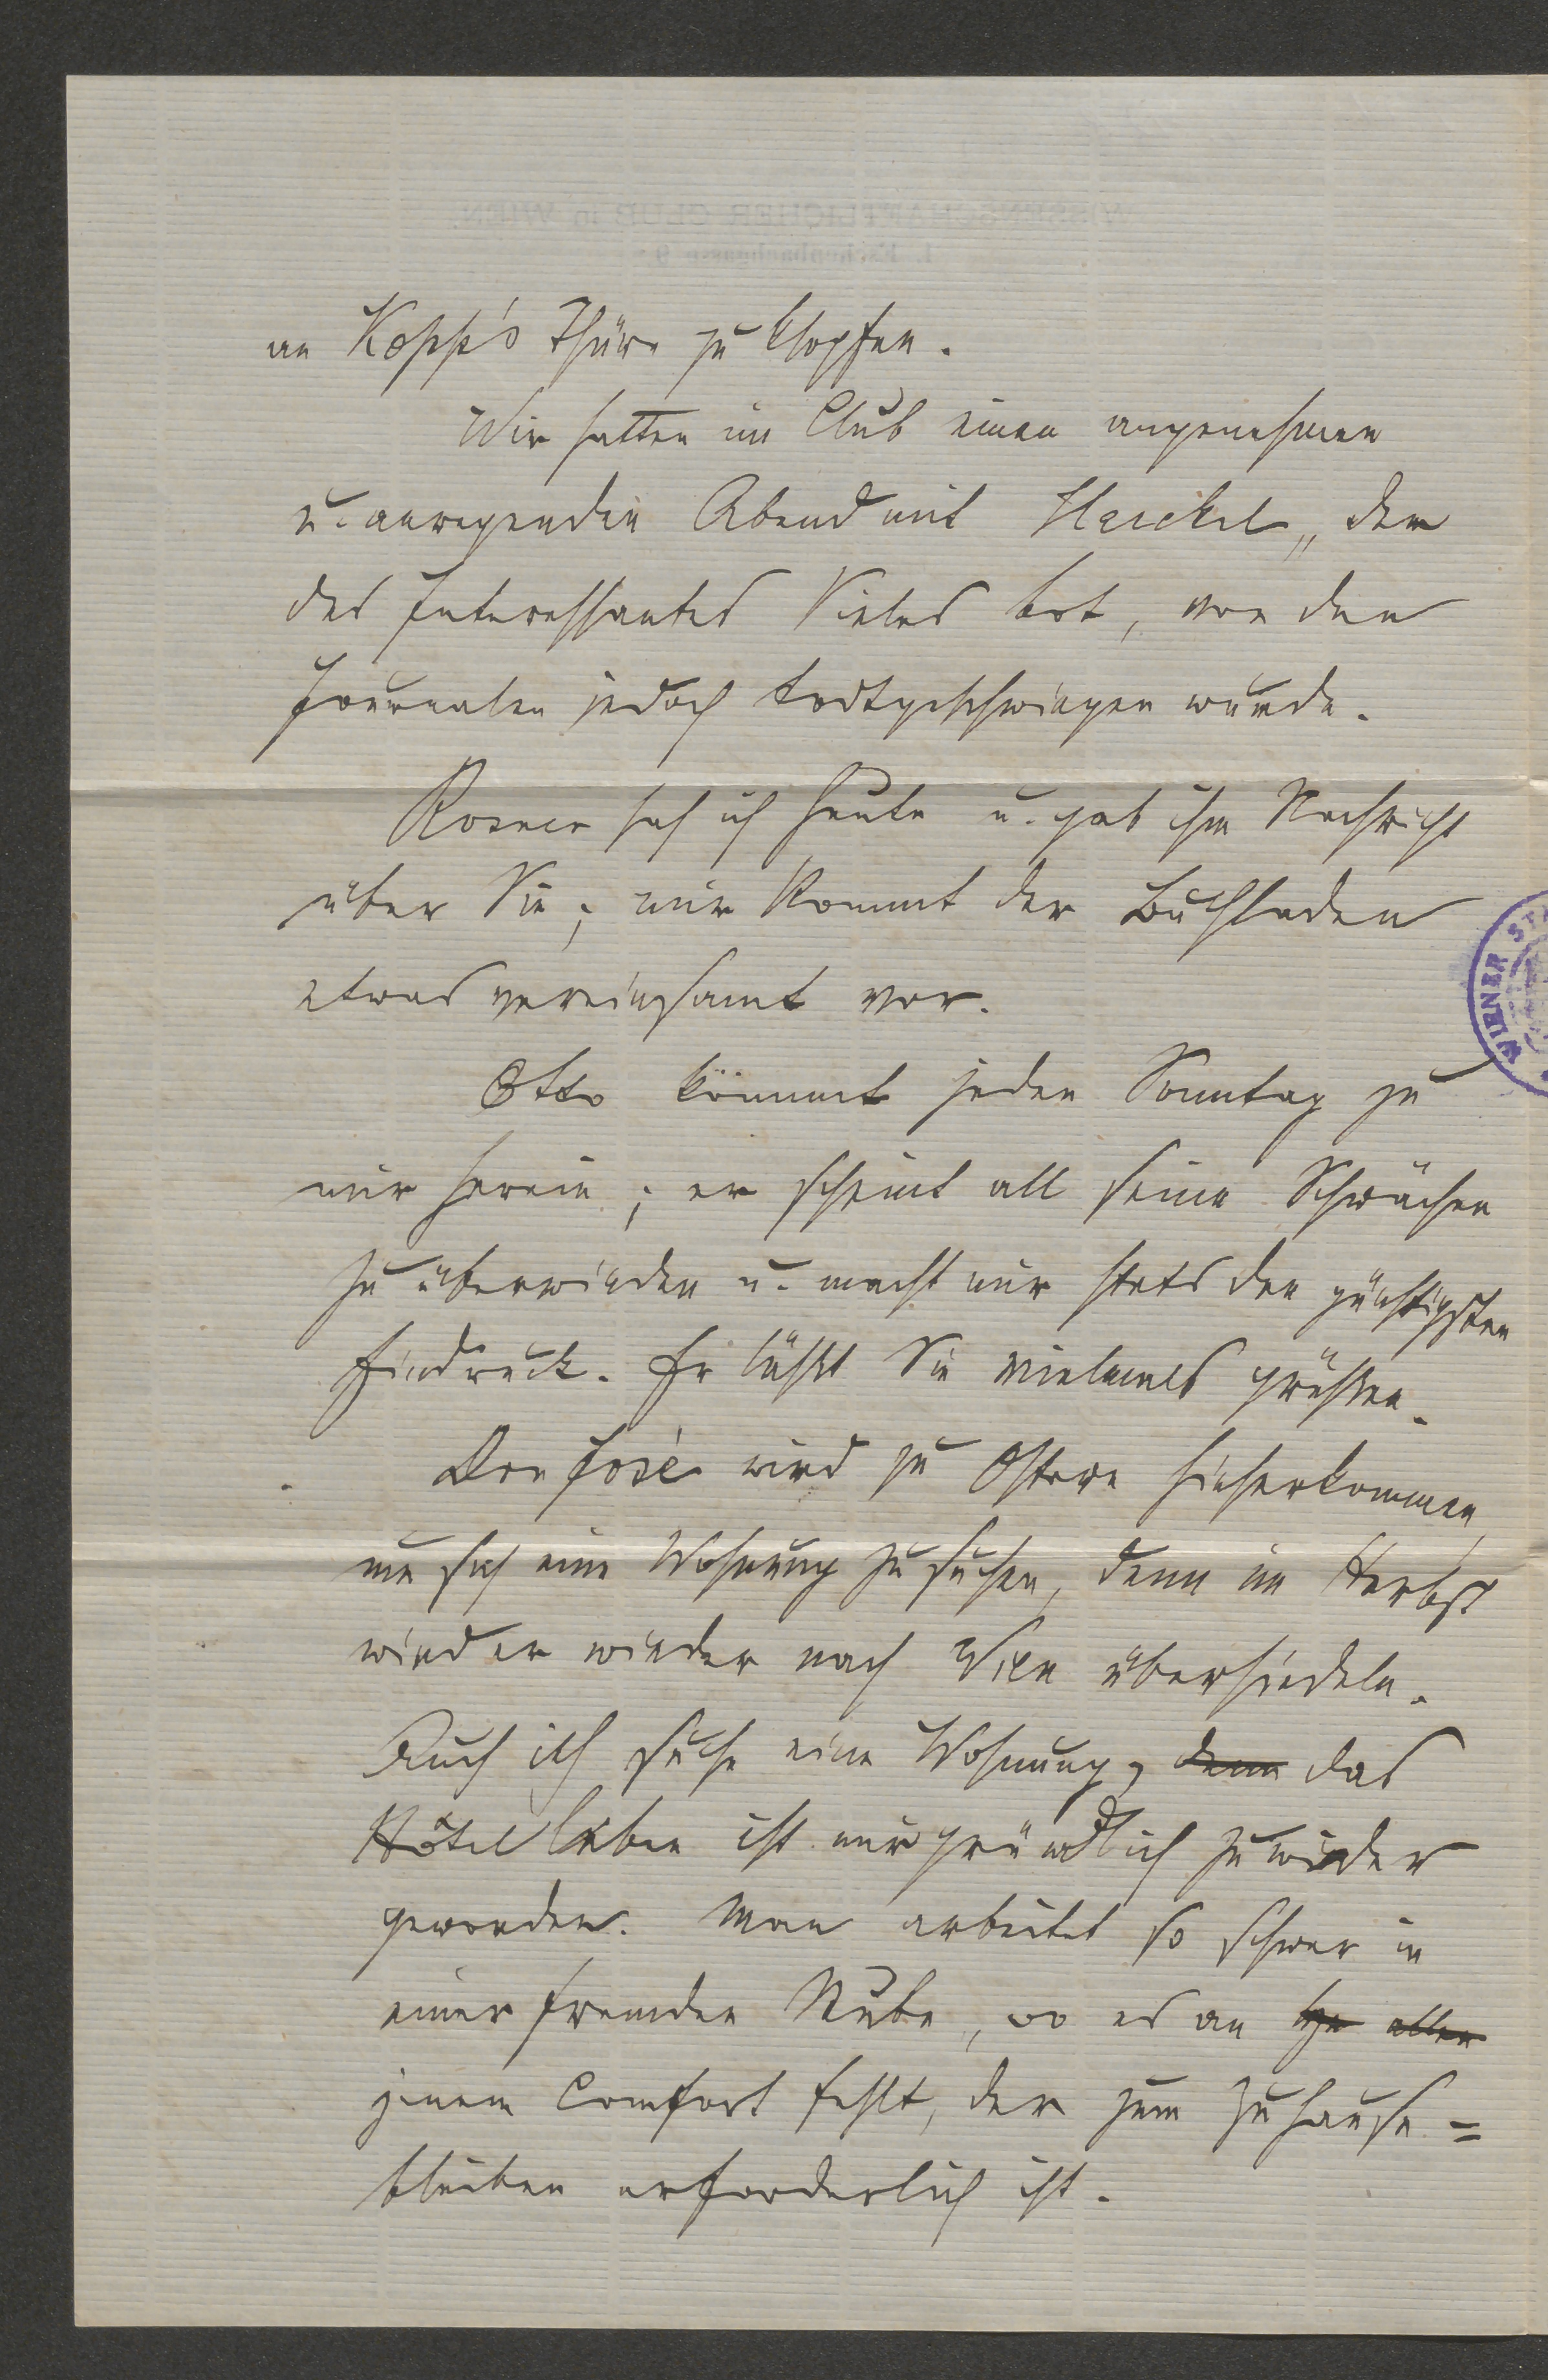 an Kopp's Thüre zu klopfen.
Wir hatten im Club einen angenehmen
u. anregenden Abend mit Haeckel, der
des Interessanten Vieles bot, von den
Journalen jedoch todtgeschwiegen wurde.
Rosner sah ich heute u. gab ihm Nachricht
über Sie; mir kommt der Buchladen
etwas vereinsamt vor.
Otto kömmt jeden Sonntag zu
mir herein; er scheint all seine Schwächen
zu überwinden u. macht mir stets den günstigsten
Eindruck. Er läßt Sie vielmals grüßen.
Don José wird zu Ostern hieherkommen,
um sich eine Wohnung zu suchen, denn im Herbst
wird er wieder nach Wien übersiedeln.
Auch ich suche eine Wohnung, denn das
Hôtelleben ist mir gründlich zuwider
geworden. Man arbeitet so schwer in
einer fremden Stube, wo es an allen
jenem Comfort fehlt, der zum Zuhause=
bleiben erforderlich ist.
WIENER